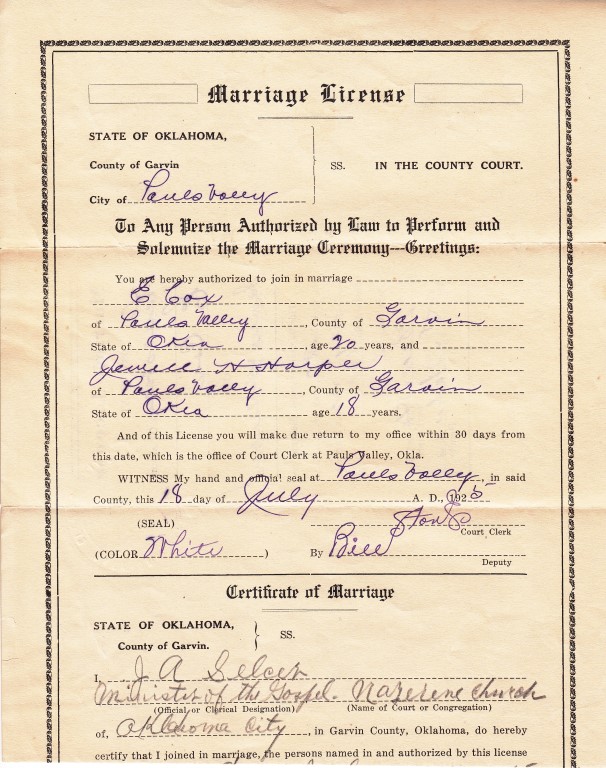 Marriage License
STATE OF OKLAHOMA,
County of Garvin
SS. IN THE COUNTY COURT.
City of Pauls Valley
To Any Person Authorized by Law to Perform and
Solemnize the Marriage Ceremony---Greetings:
You are hereby authorized to join in marriage
E Cox
of Pauls Valley, County of Garvin
State of Okla, age 20 years, and
Jewell H Harper
of Pauls Valley, County of Garvin
State of Okla age 18 years.
And of this License you will make due return to my office within 30 days from
this date, which is the office of Court Clerk at Pauls Valley, Okla.
WITNESS My hand and official seal at Pauls Valley, in said
County, this 18 day of July A. D., 1925
(SEAL)
Court Clerk
(COLOR White) By Bill
Deputy
Certificate of Marriage
STATE OF OKLAHOMA,
SS.
County of Garvin.
I, J A Selcer
Minister of the Gospel. Nazerene church
(Official or Clerical Designation) (Name of Court or Congregation)
of, Oklahoma City, in Garvin County, Oklahoma, do hereby
certify that I joined in marriage, the persons named in and authorized by this license